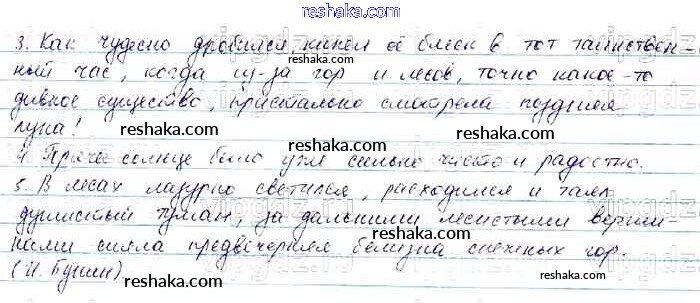 reshaka.com
3. Как чудесно дробился, кипел её блеск в тот таинствен-
ный час, когда из-за гор и лесов, точно какое-то
дивное существо, пристально смотрела поздняя
луна!
reshaka.com
reshaka.com
4. Прячь солнце было уже сильно чисто и радостно.
5. В лесах лазурно светился, расходился и таял
reshaka.com
душистый туман, за дальними лесистыми верши-
нами сияла предвечерняя белизна снежных гор.
(И. Бунин)
reshaka.com
reshaka.com